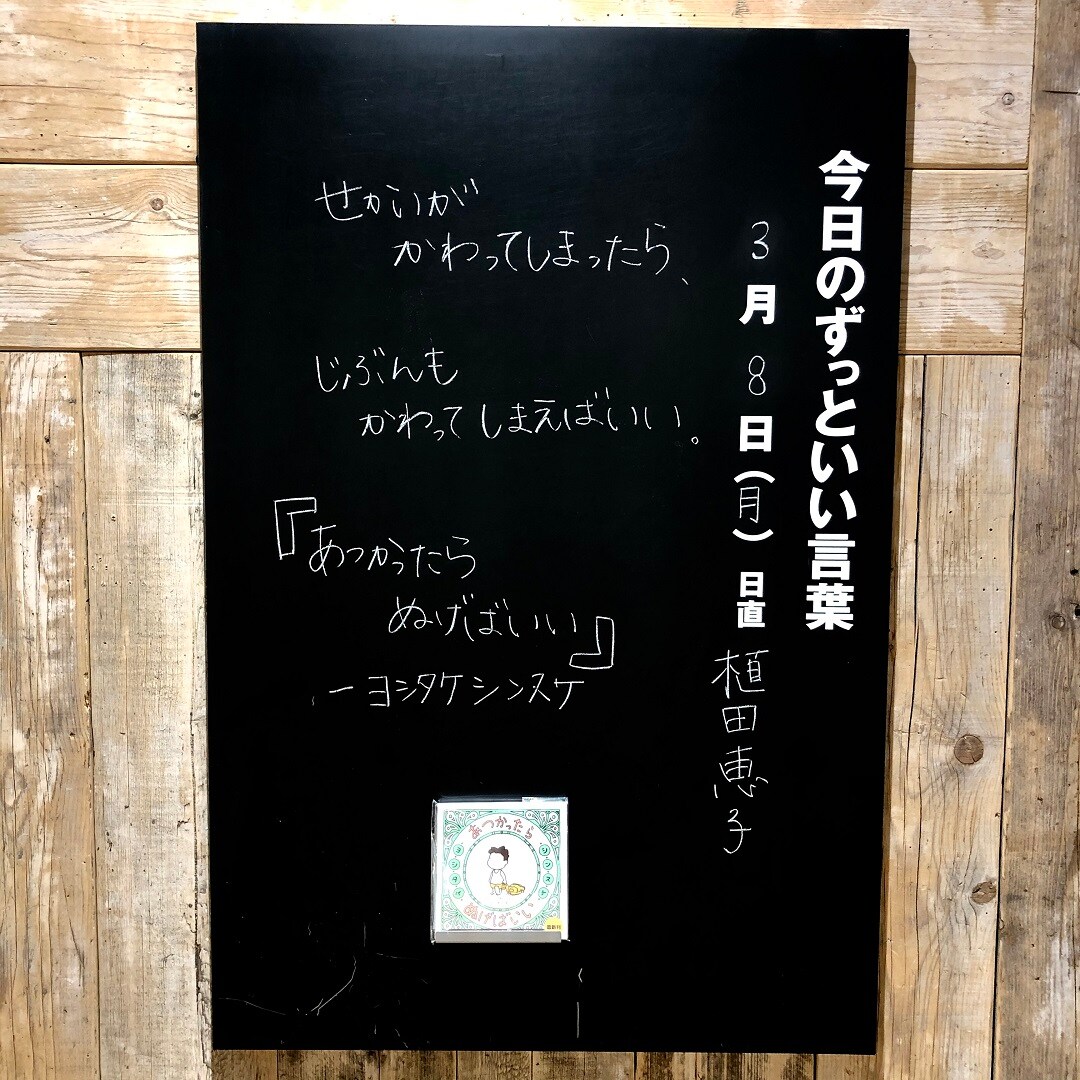 今日のずっといい言葉
3月8日(月) 日直 植田恵子
せかいが
かわってしまったら、
じぶんも
かわってしまえばいい。
『あつかったら
ぬげばいい』
ーヨシタケシンスケ
あつかったら
ヨシタケ
シンスケ
ぬげばいい
最新刊